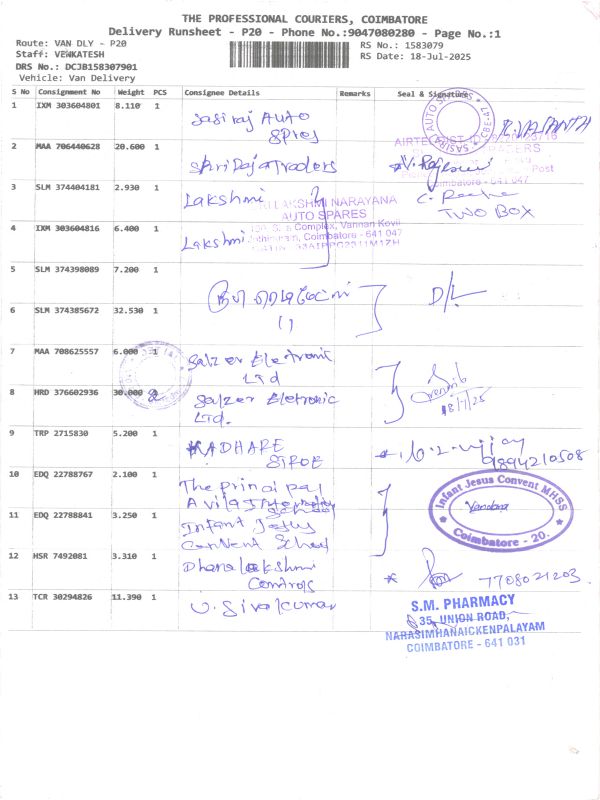 THE PROFESSIONAL COURIERS, COIMBATORE
Delivery Runsheet - P20 - Phone No.:9047080280 - Page No.:1
Route: VAN DLY - P20
Staff: VENKATESH
DRS No.: DCJB158307901
Vehicle: Van Delivery
RS No.: 1583079
RS Date: 18-Jul-2025
S No Consignment No Weight PCS Consignee Details Remarks Seal & Signature
1 IXM 303604801 8.110 1 Sasiraj Auto
Spres
SASIRAJ AUTO SPARES
CBE-47
2 MAA 706440628 20.600 1 Shri Raja Traders
Post
Coimbatore - 641 047
3 SLM 374404181 2.930 1 Lakshmi
LAKSHMI NARAYANA
AUTO SPARES
TWO BOX
4 IXM 303604816 6.400 1 Lakshmi
Complex, Vannan Kovil
Coimbatore - 641 047
5 SLM 374398089 7.200 1
6 SLM 374385672 32.530 1 11
D/L
7 MAA 708625557 6.000 1 Salzer Eletronic
Ltd
8 HRD 376602936 30.000 2 Salzer Eletronic
Ltd.
18/7/25
9 TRP 2715830 5.200 1 KADHARE
STROE
9894210508
10 EDQ 22788767 2.100 1 The principal
Avila
School
11 EDQ 22788841 3.250 1 Infant Jesus
Convent School
Infant Jesus Convent MHSS
Vandana
Coimbatore - 20.
12 HSR 7492081 3.310 1 Dhanalakshmi
Controls
7708021203
13 TCR 30294826 11.390 1 U. Sivakumar
S.M. PHARMACY
35, UNION ROAD,
NARASIMHANAICKENPALAYAM
COIMBATORE - 641 031